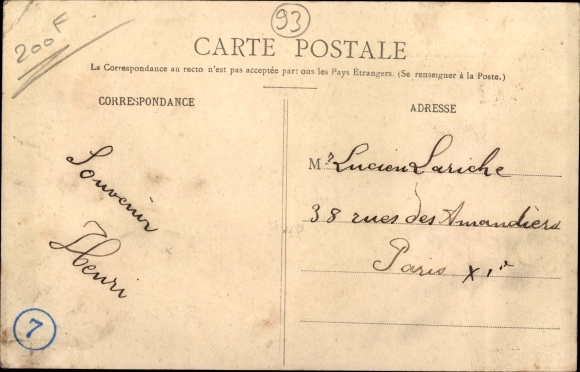 93
200F
CARTE POSTALE
La Correspondance au recto n'est pas acceptée par tous les Pays Étrangers. (Se renseigner à la Poste.)
CORRESPONDANCE
Souvenir
Henri
7
ADRESSE
Mr Lucien Lariche
38 rues des Amandiers
Paris